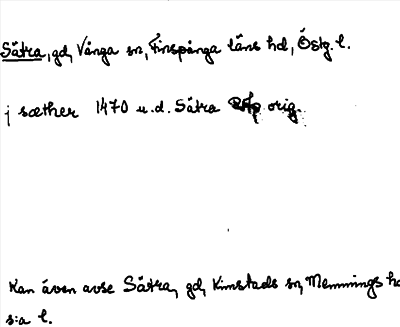 Sätra, gd, Vånga sn, Finspånga läns hd, Östg. l.
j sæther 1470 u.d. Sätra orig.
Kan även avse Sätra, gd, Kimstads sn, Memmings hd
s:a l.